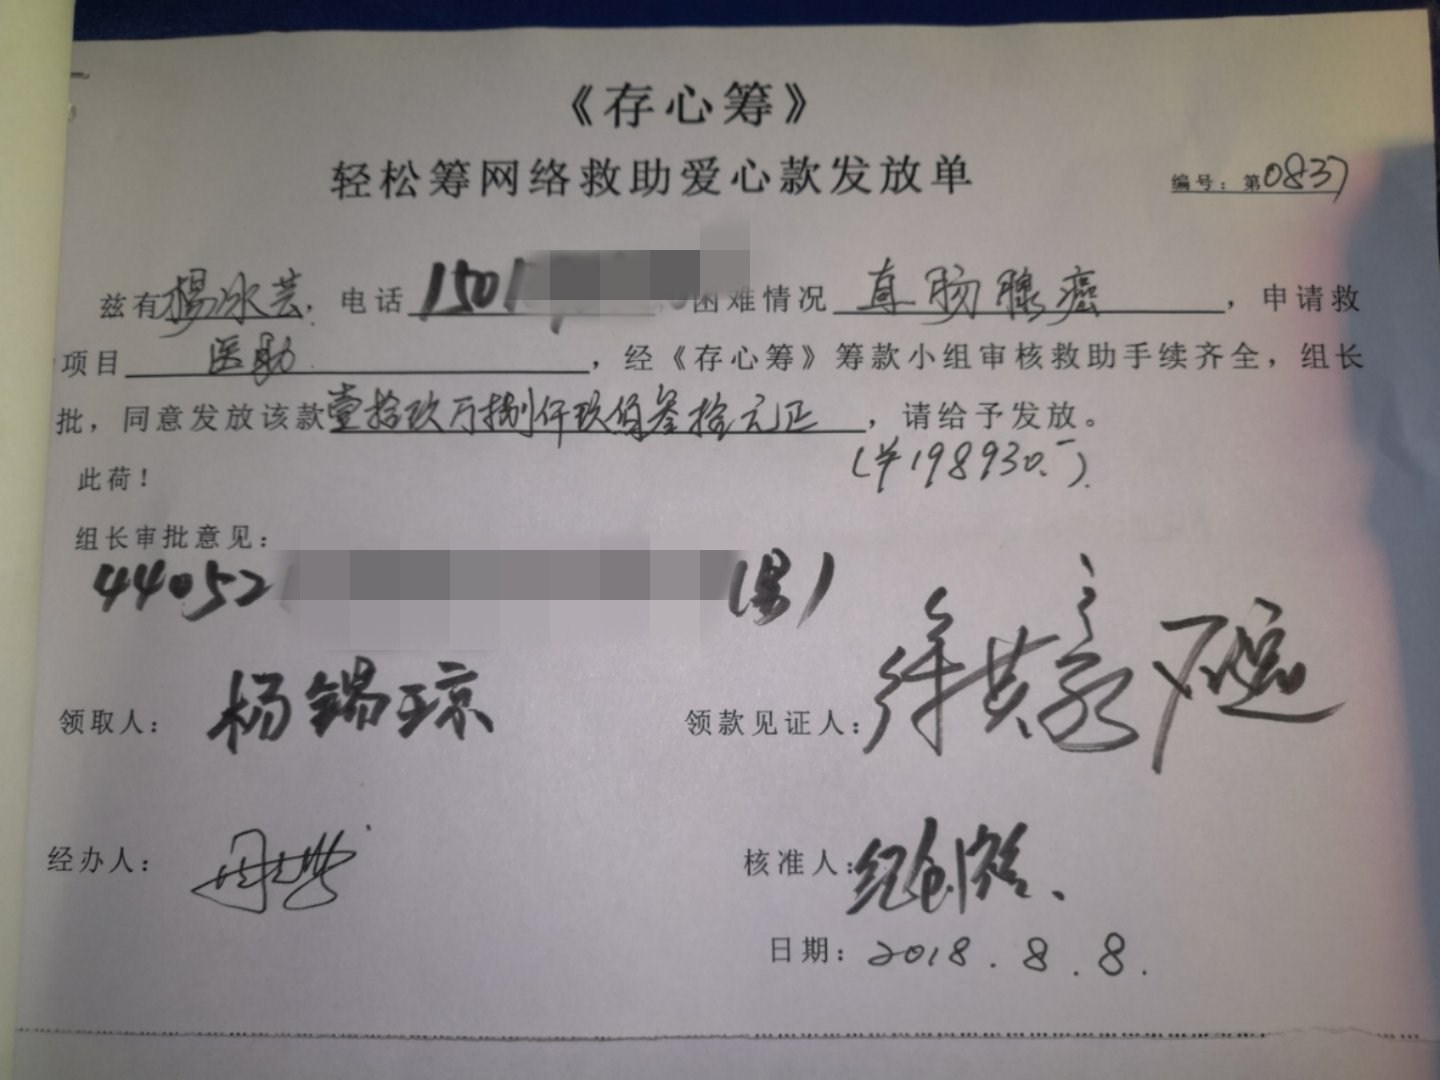 《存心筹》
轻松筹网络救助爱心款发放单
编号：第0837
兹有杨冰芸，电话1501 困难情况直肠腺癌，申请救
项目医助，经《存心筹》筹款小组审核救助手续齐全，组长
批，同意发放该款壹拾玖万捌仟玖佰叁拾元正，请给予发放。
(￥198930.-).
此荷！
组长审批意见：
44052 (男)
领取人：杨锡琼 领款见证人：
经办人： 核准人：纪创
日期：2018.8.8.